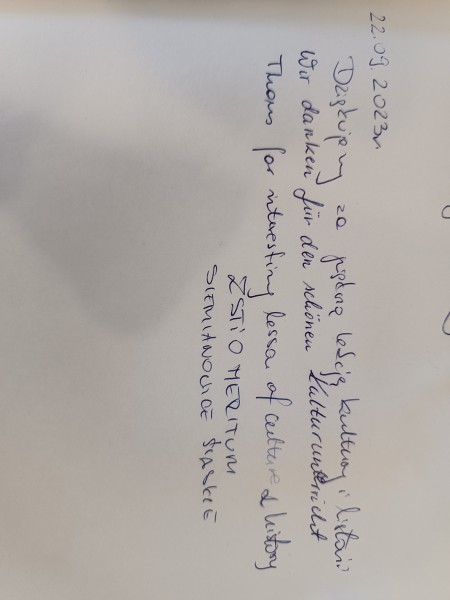 22.09.2023r
Dziękujemy za piękną lekcję kultury i
Wir danken für den schönen Kulturunterricht
Thanks for interesting lesso of culture & history
ZSTiO MERITUM
SIEMIANOWICE ŚLĄSKIE